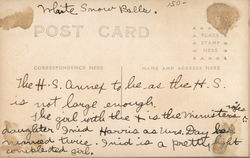 White Snow Balls.
150-
POST CARD
PLACE
STAMP
HERE
CORRESPONDENCE HERE
NAME AND ADDRESS HERE
The H.S. Annex to be, as the H.S.
is not large enough.
The girl with the x is the Ministers
daughter Inid Harris as Mrs. Day
married twice. Inid is a pretty light
complected girl.